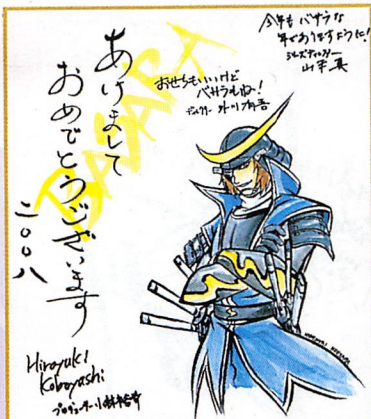 今年もバサラな
年でありますように!
シリーズディレクター
山本真
おせちもいいけど
バサラもね!
BASARA
あけまして
おめでとうございます
二〇〇八
Hiroyuki
Kobayashi
プロデューサー 小林裕幸